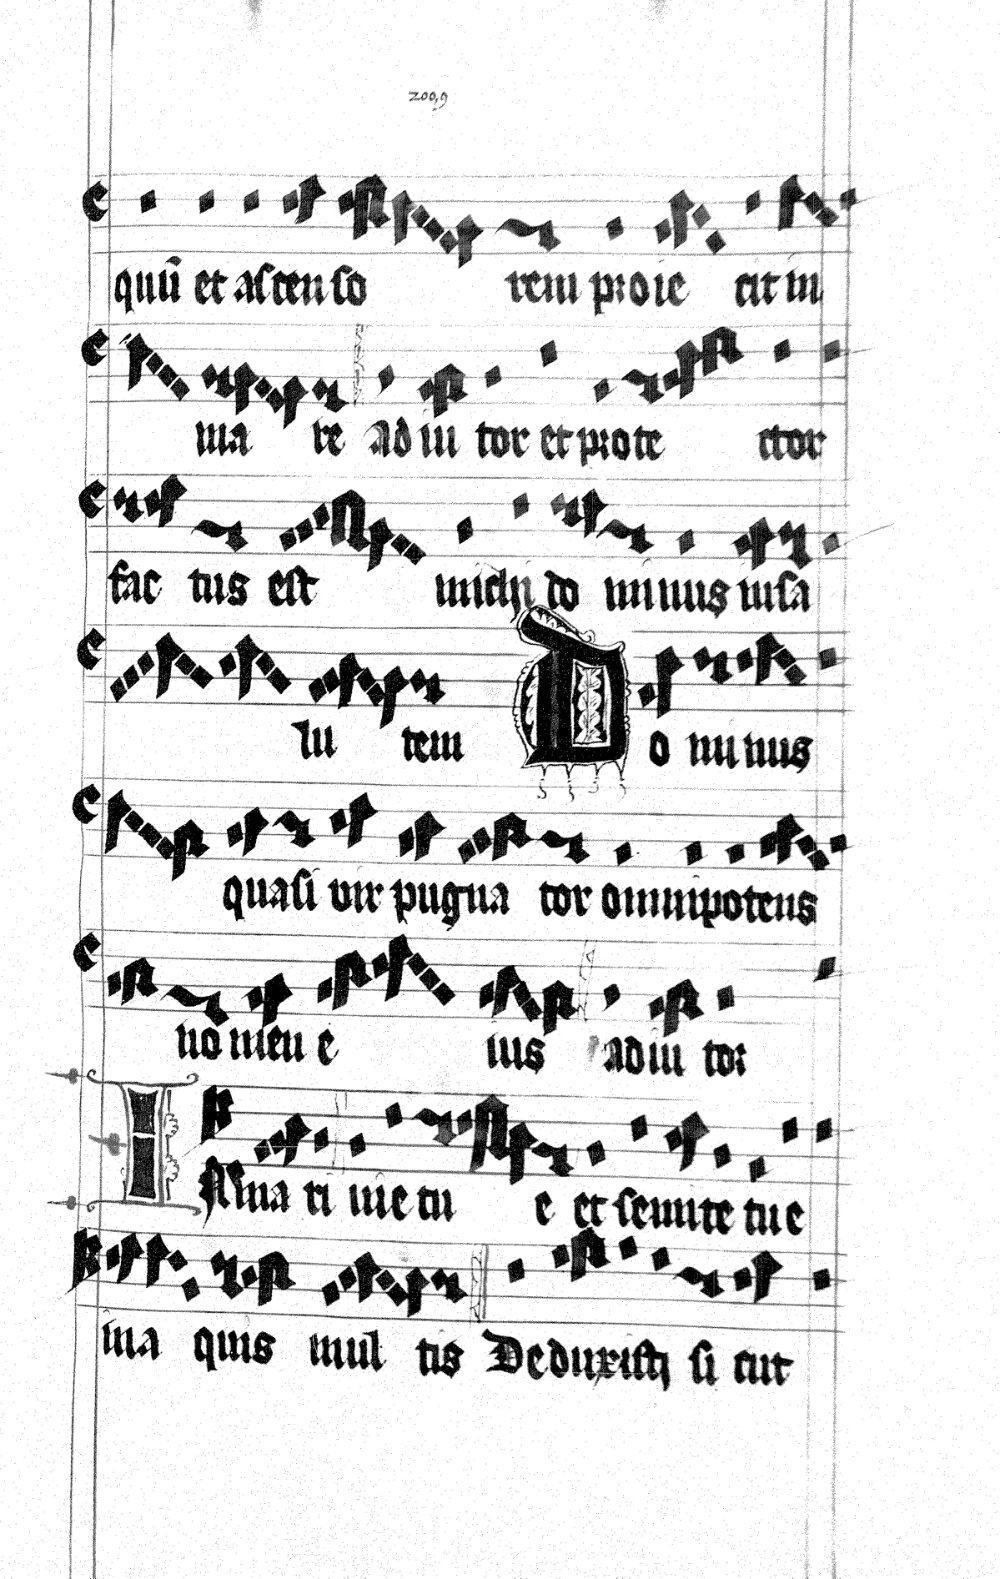 2009
quū et ascen so rem proie cit in
ma re adiu tor et prote ctor
fac tus est michi do minus insa
lu tem Do minus
quasi vir pugna tor omnipotens
nomen e ius adiu tor
In ma ri vie tu e et semite tue
in a quis mul tis Deduxisti si cut